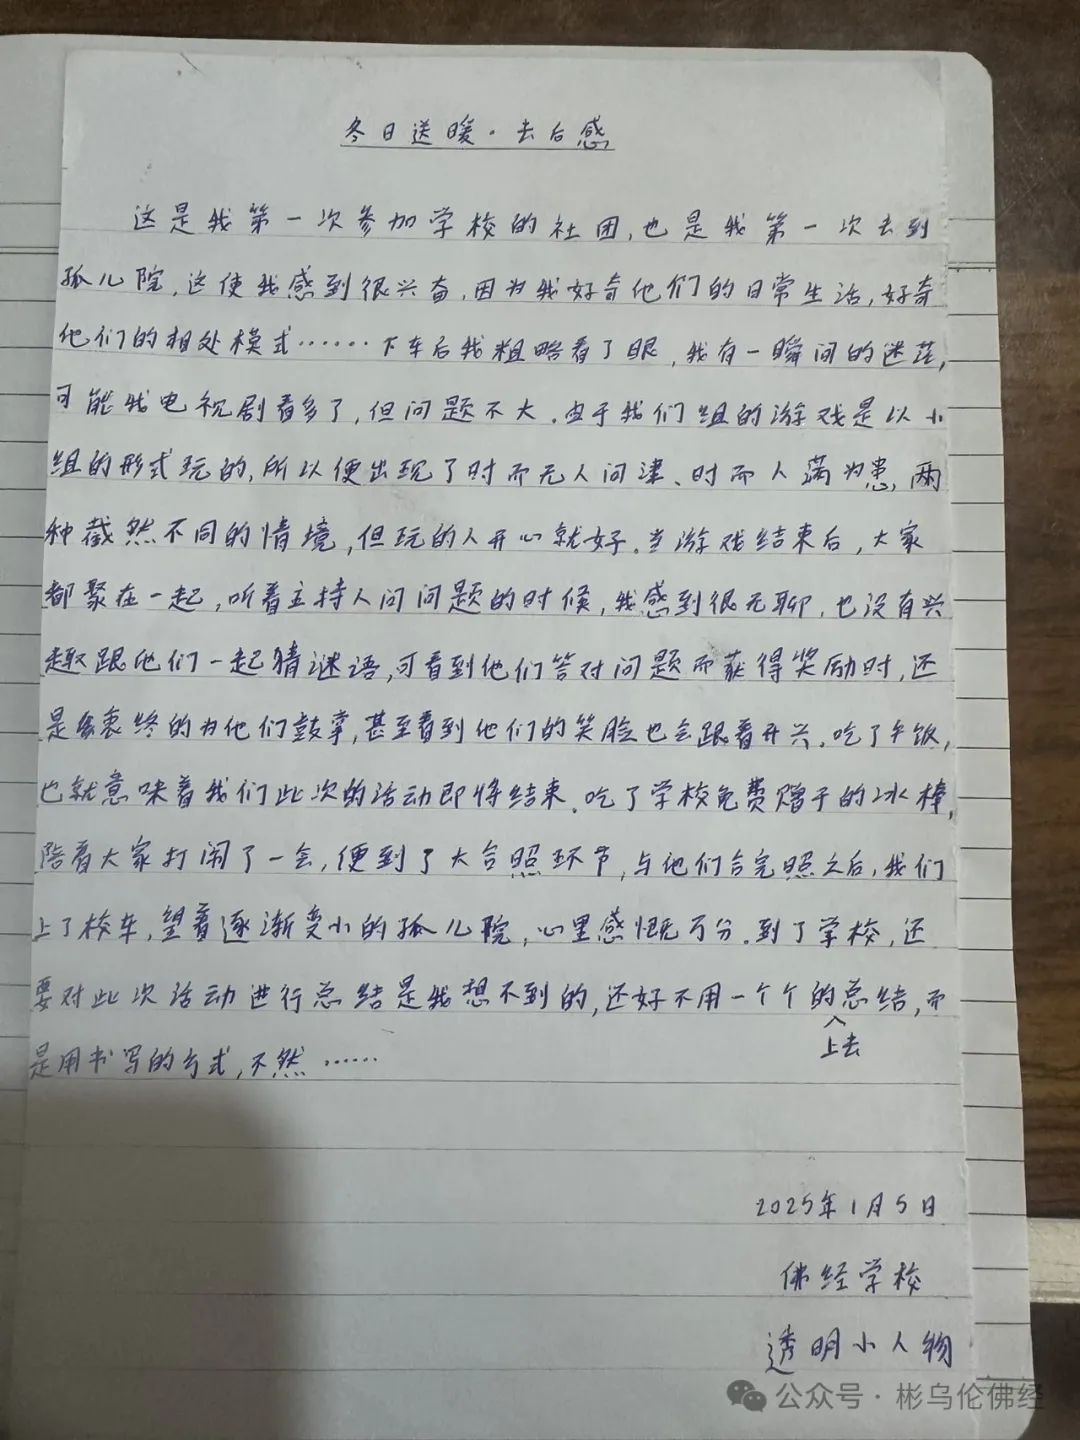 冬日送暖·去后感
这是我第一次参加学校的社团,也是我第一次去到
孤儿院,这使我感到很兴奋,因为我好奇他们的日常生活,好奇
他们的相处模式……下车后我粗略看了眼,我有一瞬间的迷茫,
可能我电视剧看多了,但问题不大.由于我们组的游戏是以小
组的形式玩的,所以便出现了时而无人问津、时而人满为患,两
种截然不同的情境,但玩的人开心就好.当游戏结束后,大家
都聚在一起,听着主持人问问题的时候,我感到很无聊,也没有兴
趣跟他们一起猜谜语,可看到他们答对问题而获得奖励时,还
是衷终的为他们鼓掌,甚至看到他们的笑脸也会跟着开兴.吃了午饭,
也就意味着我们此次的活动即将结束.吃了学校免费赠予的冰棒,
陪着大家打闹了一会,便到了大合照环节,与他们合完照之后,我们
上了校车,望着逐渐变小的孤儿院,心里感慨万分.到了学校,还
要对此次活动进行总结是我想不到的,还好不用一个个上去的总结,而
是用书写的方式,不然……
2025年1月5日
佛经学校
透明小人物
公众号·彬乌伦佛经